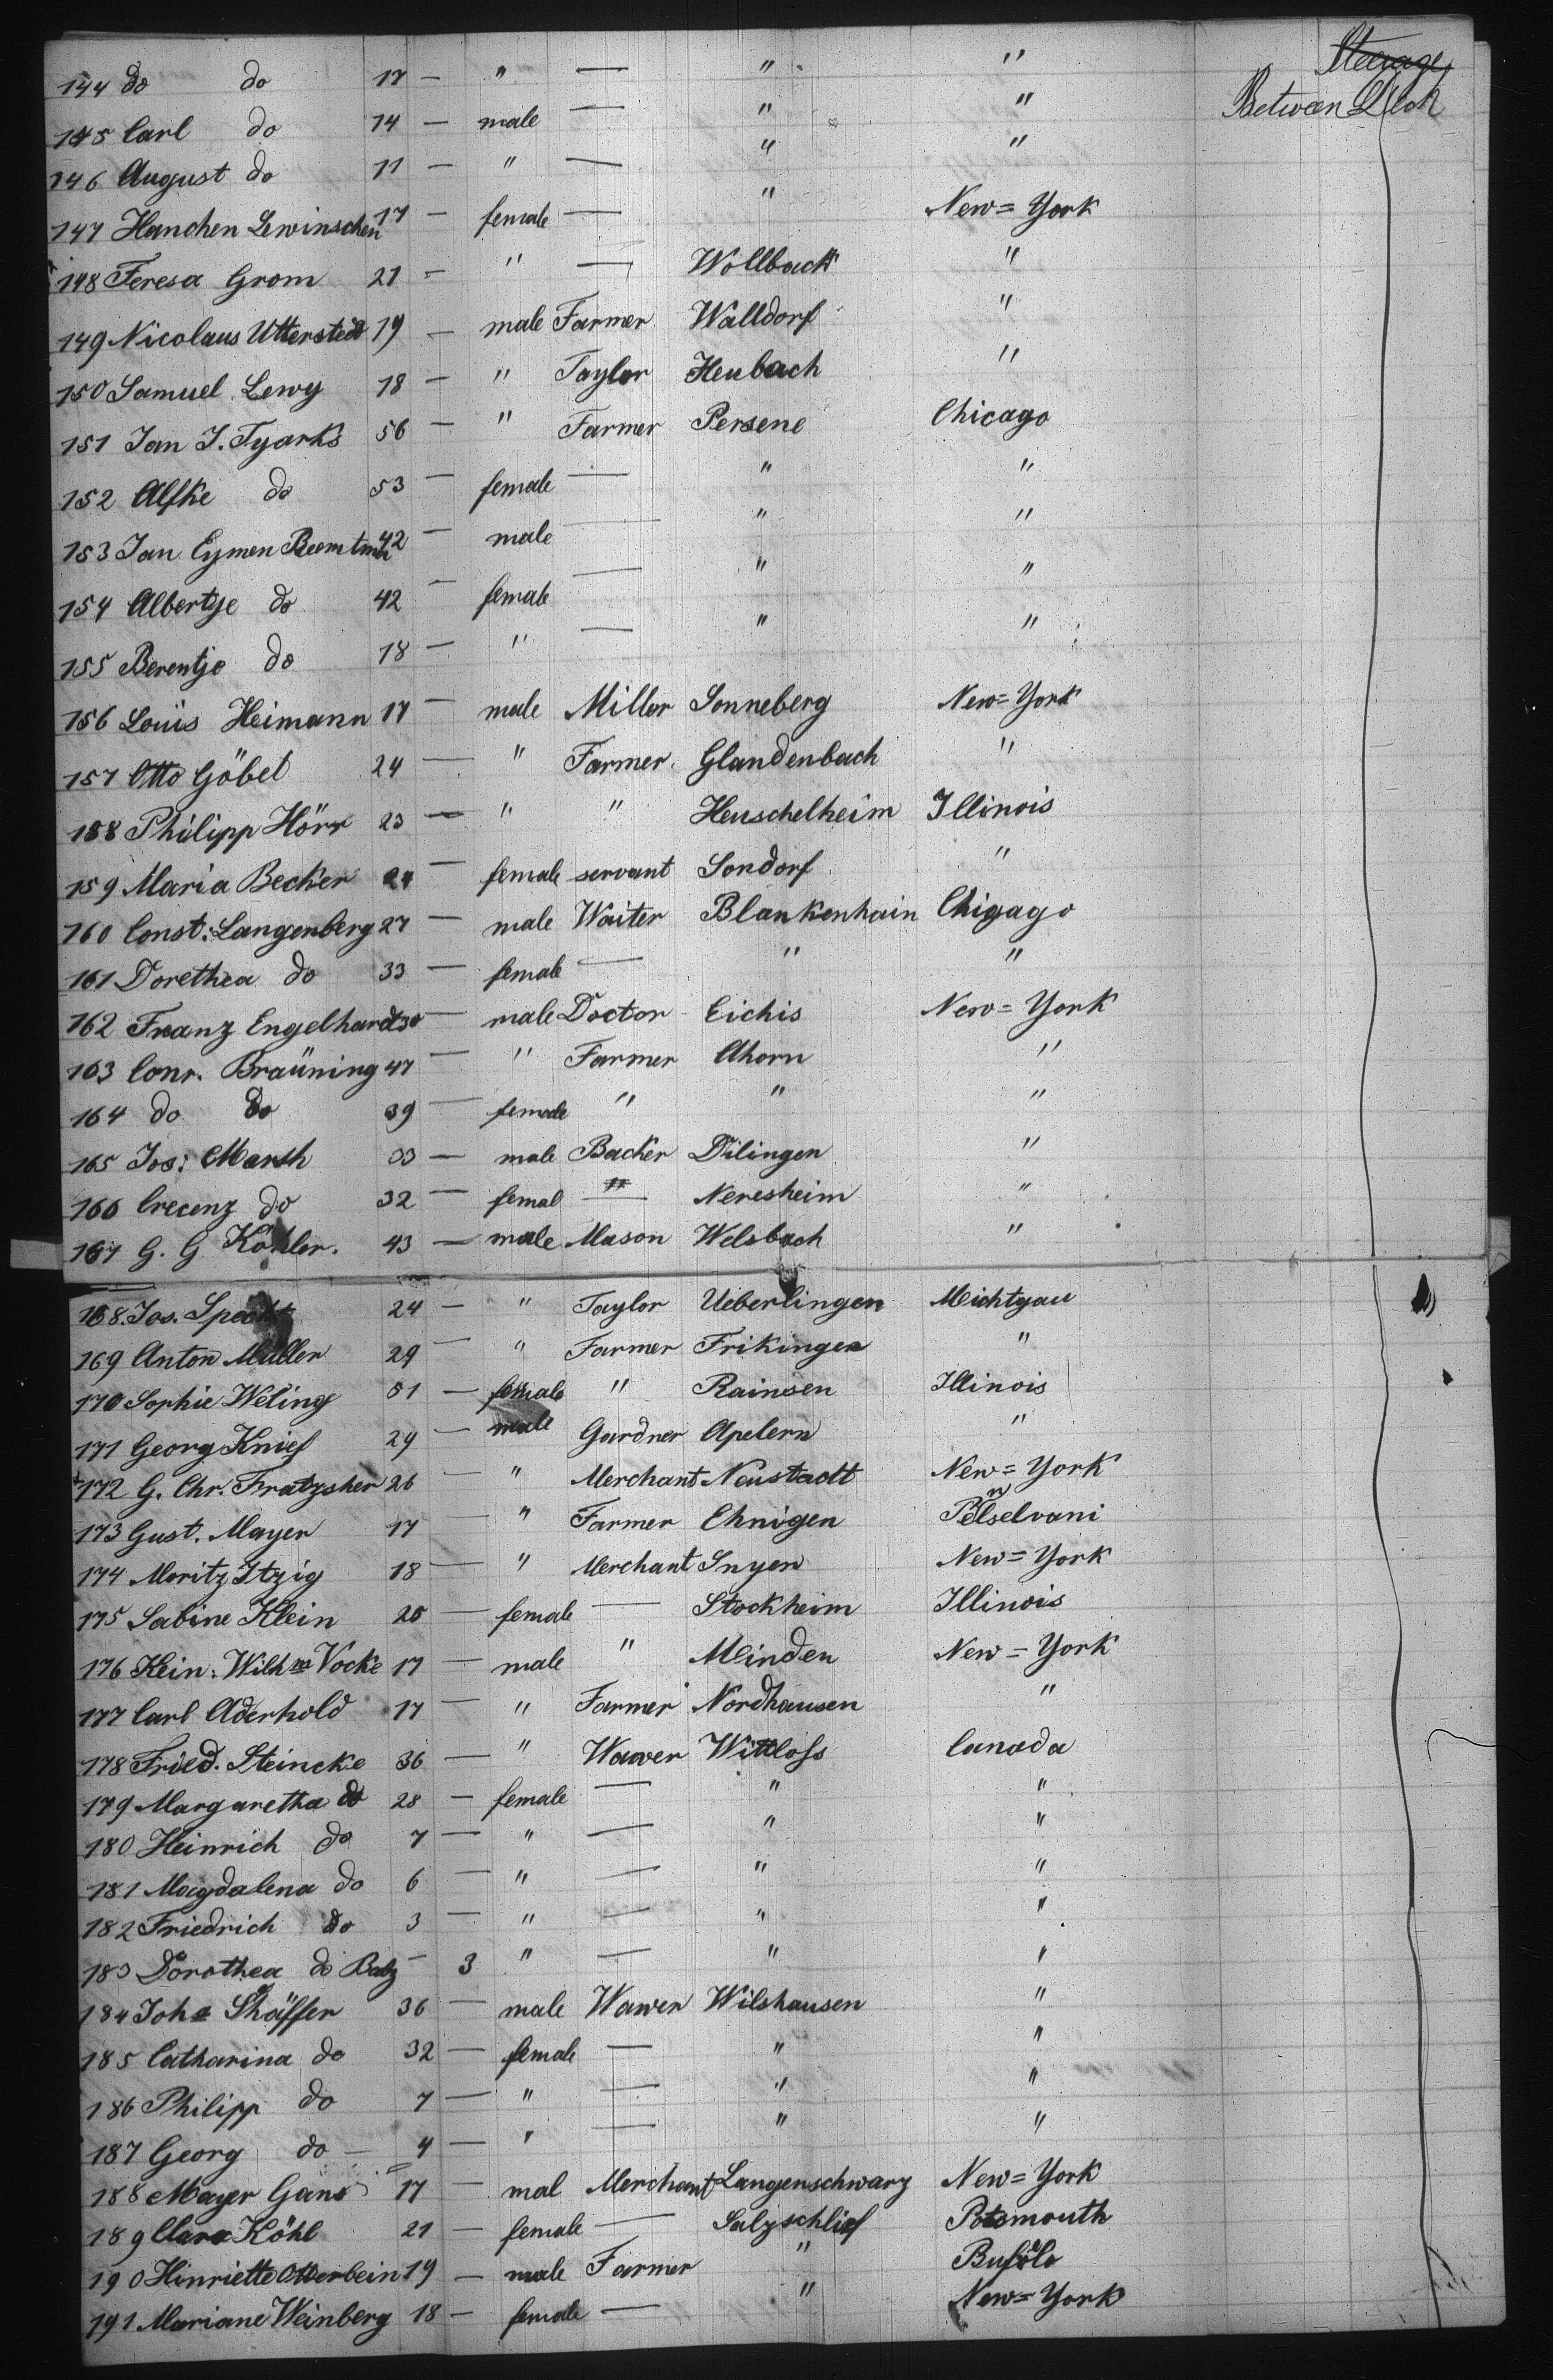 Steerage
Between Deck
144 do do 17 — " — " "
145 Carl do 14 — male — " "
146 August do 11 — " — " "
147 Hanchen Lewinschen 17 — female — " New=York
148 Feresa Grom 21 — " — Wollback "
149 Nicolaus Utterstedt 19 — male Farmer Walldorf "
150 Samuel Lewy 18 — " Taylor Heubach "
151 Jan J. Tyarks 56 — " Farmer Persene Chicago
152 Alfke do 53 — female — " "
153 Jan Eymen 42 — male — " "
154 Albertje do 42 — female — " "
155 Berentje do 18 — " — " "
156 Louis Heimann 17 — male Miller Sonneberg New=York
157 Otto Göbel 24 — " Farmer Glandenbach "
158 Philipp Hörr 23 — " " Heuschelheim Illinois
159 Maria Becker 24 — female servant Sondorf "
160 Const: Langenberg 27 — male Waiter Blankenhain Chigago
161 Dorethea do 33 — female — " "
162 Franz Engelhardt 30 — male Doctor Eichis New=York
163 Conr. Bräuning 47 — " Farmer Ahorn "
164 do do 39 — female " " "
165 Jos: Marsh 33 — male Backer Dilingen "
166 Crecenz do 32 — femal — Neresheim "
167 G. G Köhler. 43 — male Mason Welsbach "
168. Jos. Specht 24 — " Taylor Ueberlingen Michtgau
169 Anton Müller 29 — " Farmer Frikingen "
170 Sophie Weling 51 — female " Rainsen Illinois
171 Georg Knief 29 — male Gardner Apelern "
172 G. Chr. Fratzsher 26 — " Merchant Neustadt New=York
173 Gust. Mayer 17 — " Farmer Ehnigen Pelselvani
174 Moritz Itzig 18 — " Merchant Snyen New=York
175 Sabine Klein 20 — female — Stockheim Illinois
176 Hein: Wilh Vocke 17 — male " Minden New=York
177 Carl Aderhold 17 — " Farmer Nordhausen "
178 Fried. Steincke 36 — " Wawer Wittloss Canada
179 Margaretha do 28 — female — " "
180 Heinrich do 7 — " — " "
181 Magdalena do 6 — " — " "
182 Friedrich do 3 — " — " "
183 Dorothea do 3 " — " "
184 Joh Shäffer 36 — male Wawer Wilshausen "
185 Catharina do 32 — female — " "
186 Philipp do 7 — " — " "
187 Georg do — 4 — " — " "
188 Mayer Gans 17 — mal Merchant Langenschwarz New=York
189 Clara Köhl 21 — female — Salzschlief Potsmouth
190 Hinriette Otterbein 19 — male Farmer " Bufolo
191 Mariane Weinberg 18 — female — " New=York